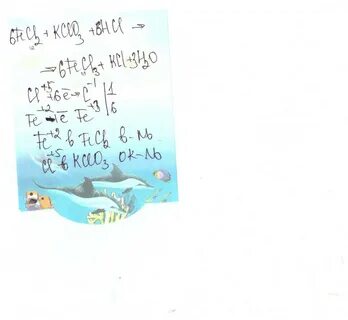 6FeCl₂ + KClO₃ + 6HCl →
→ 6FeCl₃ + KCl + 3H₂O
Cl⁺⁵ + 6ē → Cl⁻¹ | 1
Fe⁺² - 1ē Fe⁺³ | 6
Fe⁺² в FeCl₂ в-ль
Cl⁺⁵ в KClO₃ ок-ль